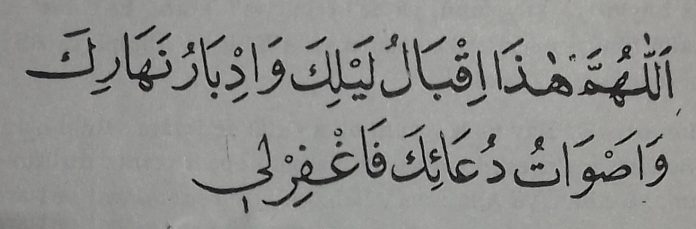 اَللّٰهُمَّ هٰذَا اِقْبَالُ لَيْلِكَ وَاِدْبَارُ نَهَارِكَ
وَاَصْوَاتُ دُعَائِكَ فَاغْفِرْ لِي